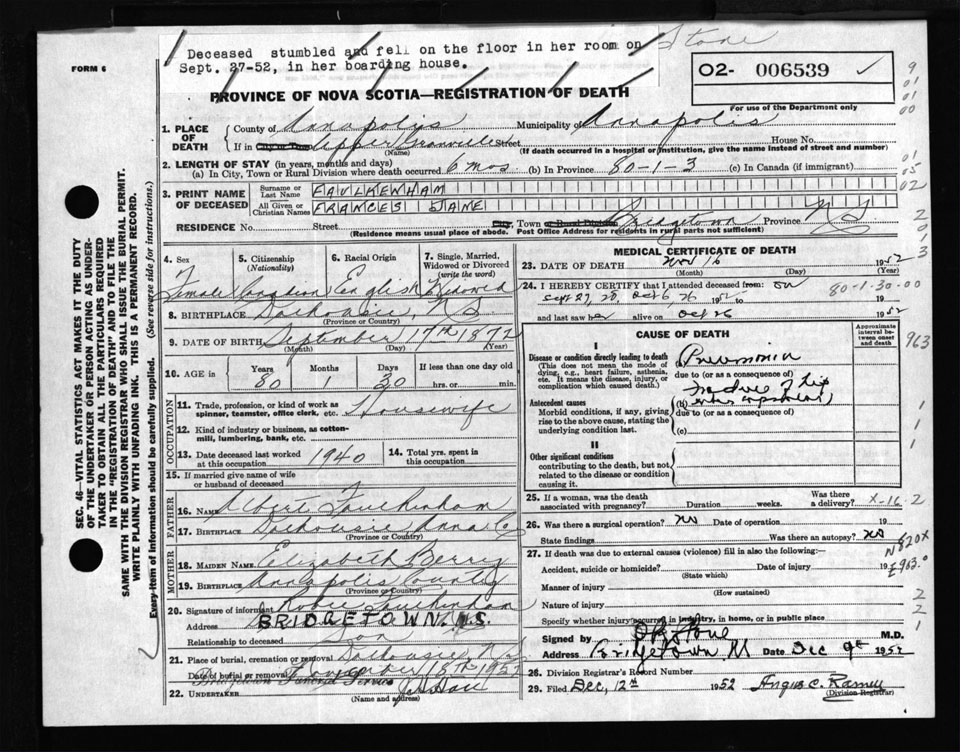 Deceased stumbled and fell on the floor in her room on
Sept. 27-52, in her boarding house.
Stone
FORM 6
O2- 006539 ✓
For use of the Department only
PROVINCE OF NOVA SCOTIA—REGISTRATION OF DEATH
1. PLACE OF DEATH
County of Annapolis Municipality of Annapolis
If in City or Town Upper Granville Street House No.
(Name) (If death occurred in a hospital or institution, give the name instead of street and number)
2. LENGTH OF STAY (in years, months and days)
(a) In City, Town or Rural Division where death occurred 6 mos (b) In Province 80-1-3 (c) In Canada (if immigrant)
3. PRINT NAME OF DECEASED
Surname or Last Name FAULKENHAM
All Given or Christian Names FRANCES JANE
RESIDENCE No. Street City, Town or Rural Bridgetown Province N S
(Residence means usual place of abode. Post Office Address for residents in rural parts not sufficient)
4. Sex Female
5. Citizenship (Nationality) Canadian
6. Racial Origin English
7. Single, Married, Widowed or Divorced (write the word) Widowed
8. BIRTHPLACE Dalhousie, N S
(Province or Country)
9. DATE OF BIRTH September 17th 1872
(Month) (Day) (Year)
10. AGE in Years 80 Months 1 Days 30 If less than one day hrs. or min.
OCCUPATION
11. Trade, profession, or kind of work as spinner, teamster, office clerk, etc. Housewife
12. Kind of industry or business, as cotton-mill, lumbering, bank, etc.
13. Date deceased last worked at this occupation 1940
14. Total yrs. spent in this occupation
15. If married give name of wife or husband of deceased
FATHER
16. NAME Albert Faulkenham
17. BIRTHPLACE Dalhousie Anna Co
(Province or Country)
MOTHER
18. MAIDEN NAME Elizabeth Berry
19. BIRTHPLACE Annapolis County
(Province or Country)
20. Signature of informant Faulkenham
Address BRIDGETOWN. N.S.
Relationship to deceased Son
21. Place of burial, cremation or removal Dalhousie, N S
Date of burial or removal November 18th 1952
Bridgetown Funeral Service
22. UNDERTAKER
(Name and address)
MEDICAL CERTIFICATE OF DEATH
23. DATE OF DEATH Nov 16 1952
(Month) (Day) (Year)
24. I HEREBY CERTIFY that I attended deceased from: on
Sept 27, 28, Oct 6, 26 1952 to 19
80-1-30-00
and last saw her alive on Oct 26 1952
CAUSE OF DEATH
Approximate interval between onset and death
I
Disease or condition directly leading to death
(This does not mean the mode of dying, e.g., heart failure, asthenia, etc. It means the disease, injury, or complication which caused death.)
(a) Pneumonia
due to (or as a consequence of)
Antecedent causes
Morbid conditions, if any, giving rise to the above cause, stating the underlying condition last.
(b) Fracture of hip
intercapsular
due to (or as a consequence of)
(c)
II
Other significant conditions
contributing to the death, but not related to the disease or condition causing it.
25. If a woman, was the death associated with pregnancy? Duration weeks. Was there a delivery?
X-16-2
26. Was there a surgical operation? No Date of operation 19
State findings Was there an autopsy? No
N 820X
27. If death was due to external causes (violence) fill in also the following:—
Accident, suicide or homicide? Date of injury 19
(State which)
E963.0
Manner of injury
(How sustained)
Nature of injury
Specify whether injury occurred in industry, in home, or in public place
Signed by Stone M.D.
Address Bridgetown, N Date Dec 9th 1952
28. Division Registrar's Record Number
29. Filed Dec, 12th 1952 Angus C. Ramey
(Division Registrar)
SEC. 46—VITAL STATISTICS ACT MAKES IT THE DUTY
OF THE UNDERTAKER OR PERSON ACTING AS UNDER-
TAKER TO OBTAIN ALL THE PARTICULARS REQUIRED
IN THE "REGISTRATION OF DEATH" AND TO FILE THE
SAME WITH THE DIVISION REGISTRAR WHO SHALL ISSUE THE BURIAL PERMIT.
WRITE PLAINLY WITH UNFADING INK. THIS IS A PERMANENT RECORD.
Every item of information should be carefully supplied. (See reverse side for instructions.)
9
01
01
00
01
05
02
2
0
1
3
963
1
1
1
2
2
1